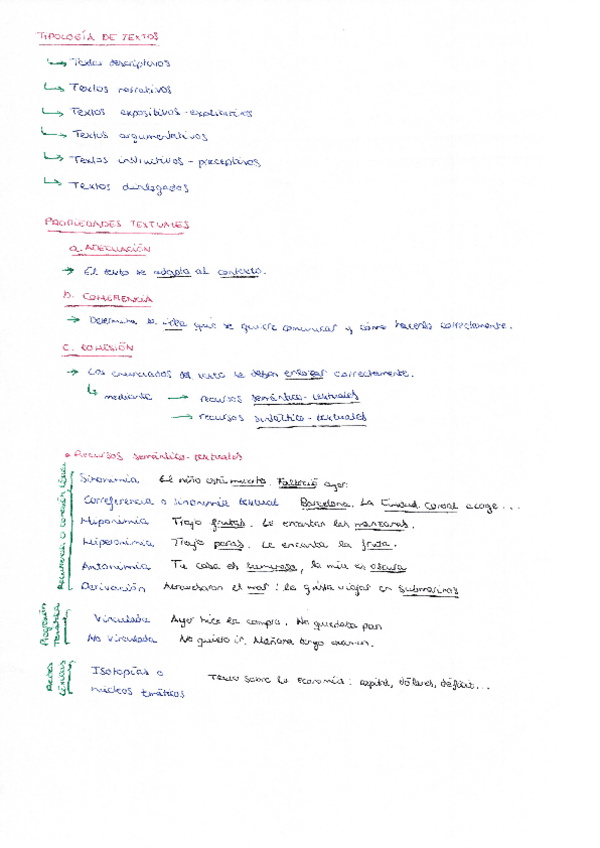 TIPOLOGÍA DE TEXTOS
Textos descriptivos
Textos narrativos
Textos expositivos - explicativos
Textos argumentativos
Textos instructivos - preceptivos
Textos dialogados
PROPIEDADES TEXTUALES
a. ADECUACIÓN
→ El texto se adapta al contexto.
b. COHERENCIA
→ Determina la idea que se quiere comunicar y cómo hacerlo correctamente.
C. COHESIÓN
→ Los enunciados del texto se deben enlazar correctamente.
mediante → recursos semántico-textuales
→ recursos sintáctico-textuales
Recursos semántico-textuales
Recurrencia o cohesión léxica
Sinonimia El niño está muerto. Falleció ayer.
Correferencia o sinonimia textual Barcelona. La Ciudad Condal acoge...
Hiponimia Trajo frutas. Le encantan las manzanas.
Hiperonimia Trajo peras. Le encanta la fruta.
Antonimia Tu casa es luminosa, la mía es oscura
Derivación el mar: le gusta viajar en submarinos
Progresión temática
Vinculada Ayer hice la compra. No quedaba pan
No Vinculada No quiero ir. Mañana tengo examen.
Redes léxicas
Isotopías o
núcleos temáticos
Texto sobre la economía: capital, dólares, déficit...